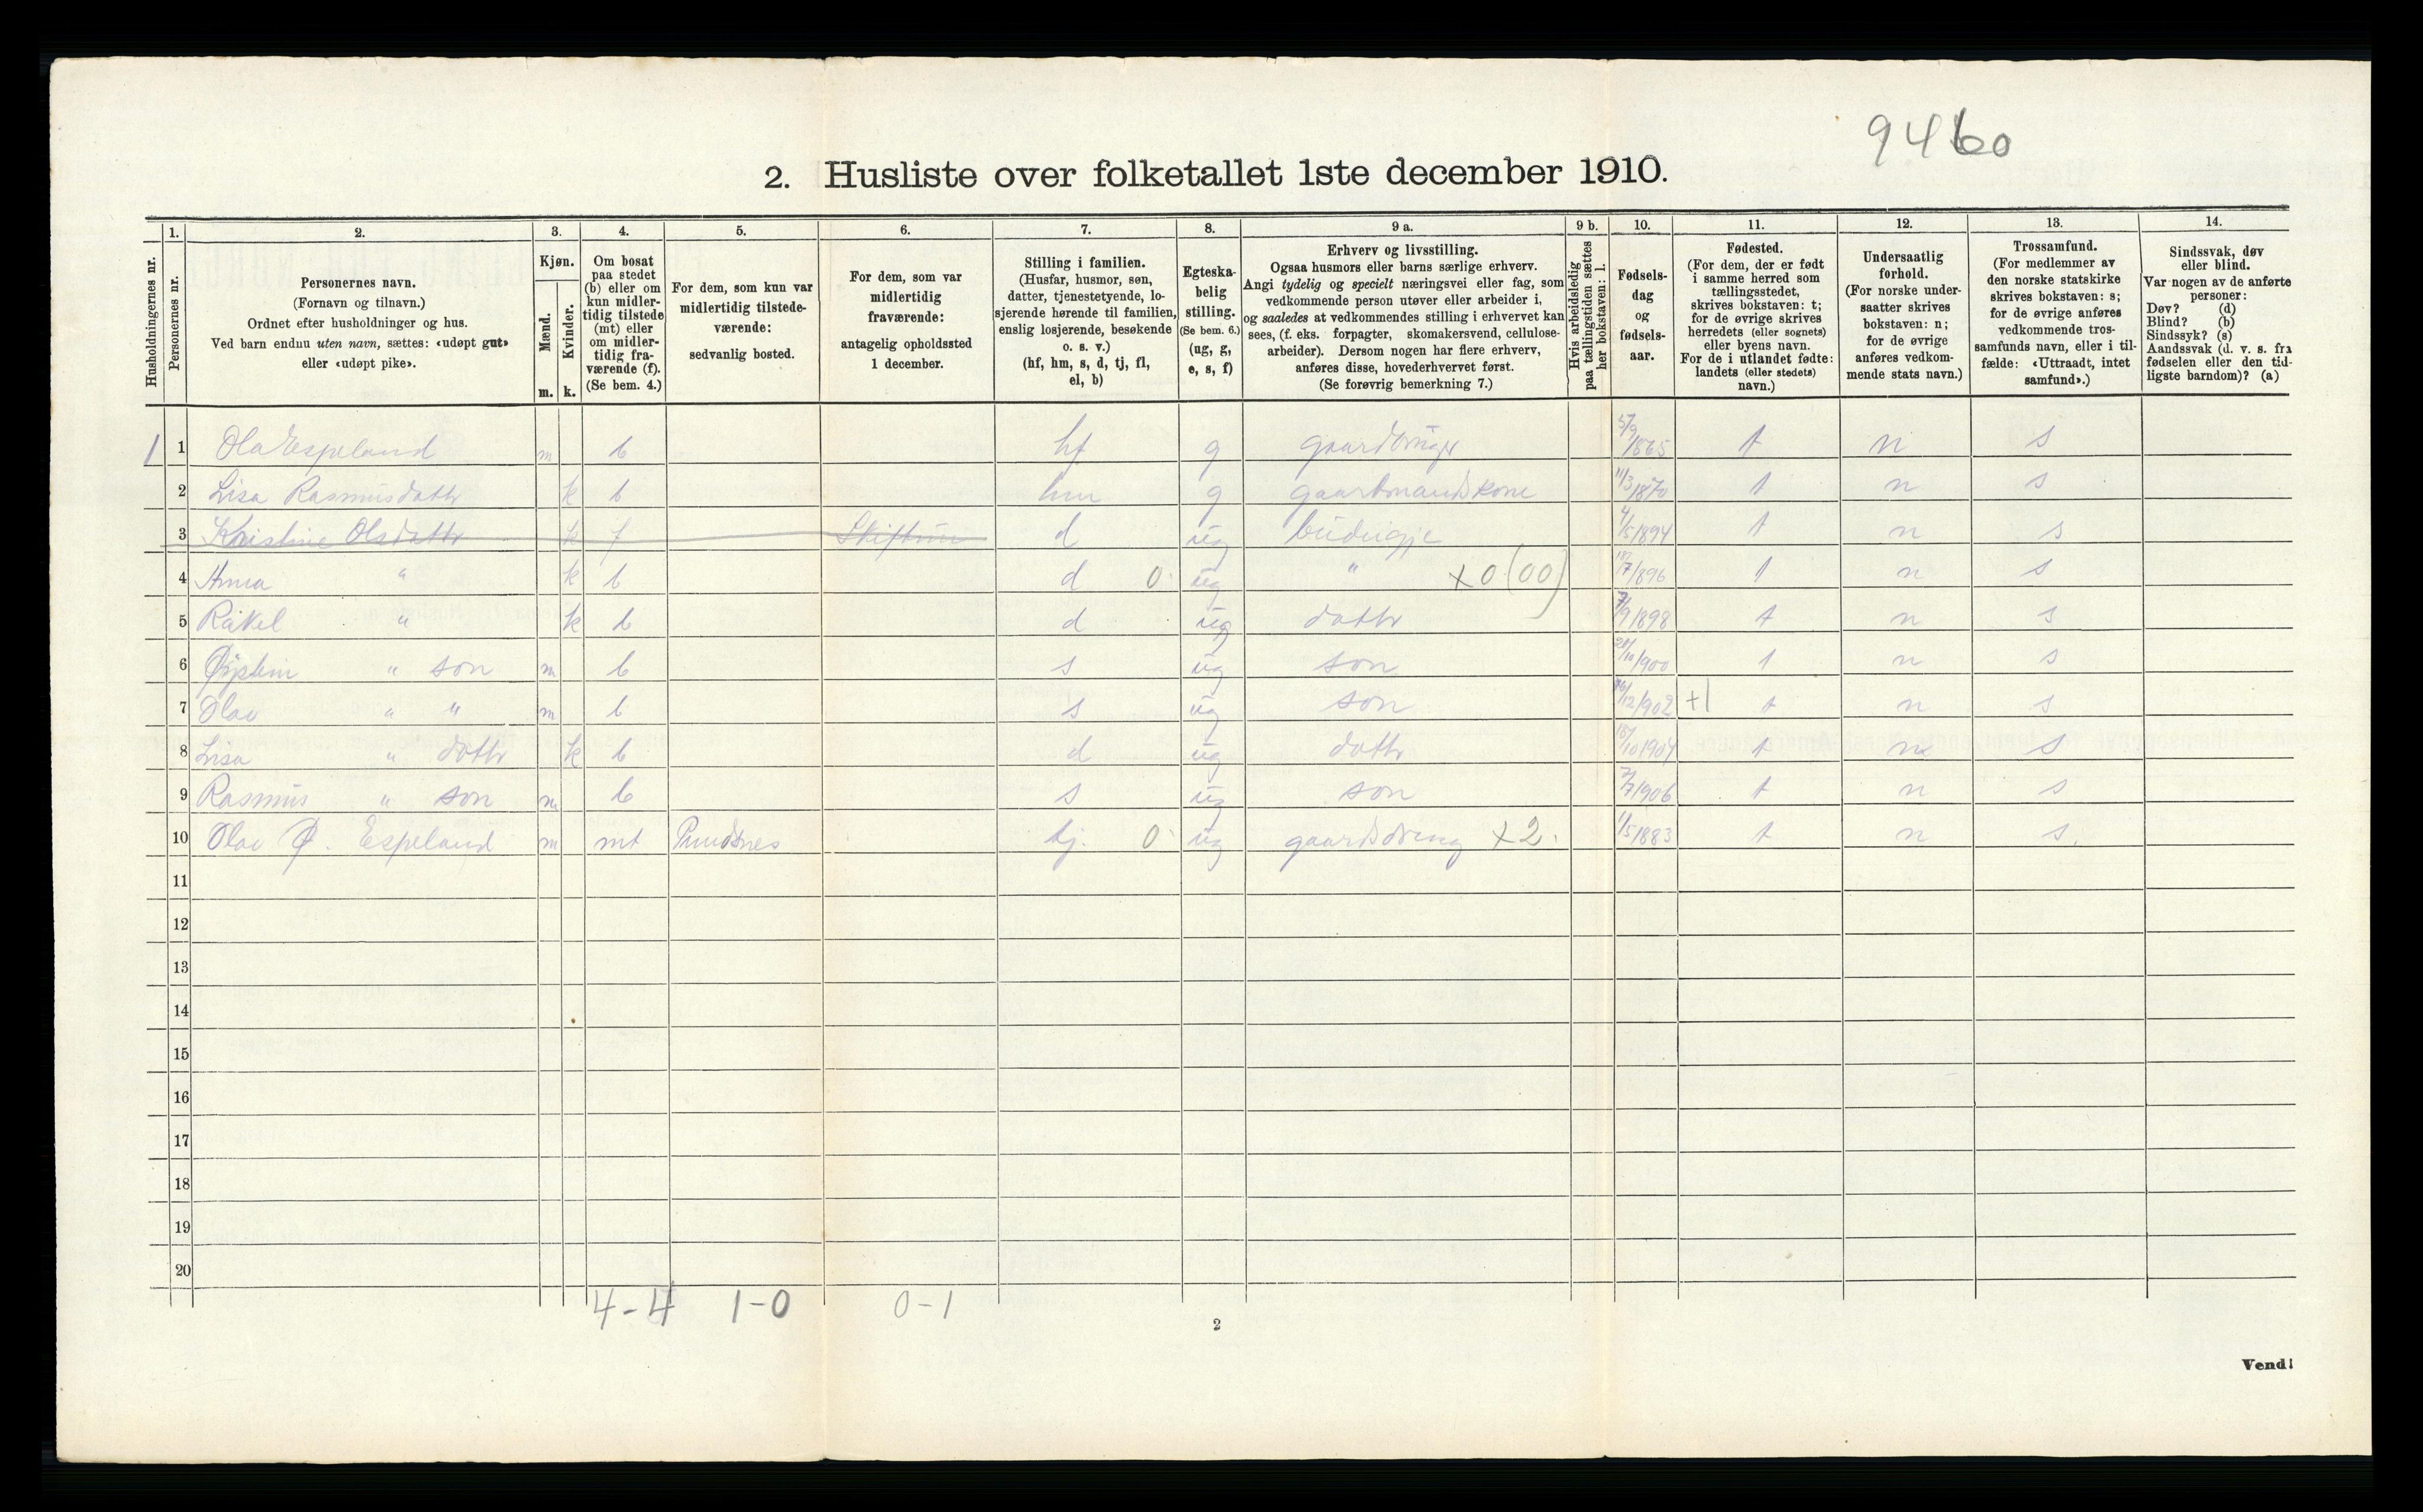 9460
2. Husliste over folketallet 1ste december 1910.
Husholdningernes nr.
1.
Personernes nr.
2.
Personernes navn.
(Fornavn og tilnavn.)
Ordnet efter husholdninger og hus.
Ved barn endnu uten navn, sættes: «udøpt gut»
eller «udøpt pike».
3.
Kjøn.
Mænd.
Kvinder.
m. k.
4.
Om bosat
paa stedet
(b) eller om
kun midler-
tidig tilstede
(mt) eller
om midler-
tidig fra-
værende (f).
(Se bem. 4.)
5.
For dem, som kun var
midlertidig tilstede-
værende:
sedvanlig bosted.
6.
For dem, som var
midlertidig
fraværende:
antagelig opholdssted
1 december.
7.
Stilling i familien.
(Husfar, husmor, søn,
datter, tjenestetyende, lo-
sjerende hørende til familien,
enslig losjerende, besøkende
o. s. v.)
(hf, hm, s, d, tj, fl,
el, b)
8.
Egteska-
belig
stilling.
(Se bem. 6.)
(ug, g,
e, s, f)
9 a.
Erhverv og livsstilling.
Ogsaa husmors eller barns særlige erhverv.
Angi tydelig og specielt næringsvei eller fag, som
vedkommende person utøver eller arbeider i,
og saaledes at vedkommendes stilling i erhvervet kan
sees, (f. eks. forpagter, skomakersvend, cellulose-
arbeider). Dersom nogen har flere erhverv,
anføres disse, hovederhvervet først.
(Se forøvrig bemerkning 7.)
9 b.
Hvis arbeidsledig
paa tællingstiden sættes
her bokstaven: l.
10.
Fødsels-
dag
og
fødsels-
aar.
11.
Fødested.
(For dem, der er født
i samme herred som
tællingsstedet,
skrives bokstaven: t;
for de øvrige skrives
herredets (eller sognets)
eller byens navn.
For de i utlandet fødte:
landets (eller stedets)
navn.)
12.
Undersaatlig
forhold.
(For norske under-
saatter skrives
bokstaven: n;
for de øvrige
anføres vedkom-
mende stats navn.)
13.
Trossamfund.
(For medlemmer av
den norske statskirke
skrives bokstaven: s;
for de øvrige anføres
vedkommende tros-
samfunds navn, eller i til-
fælde: «Uttraadt, intet
samfund».)
14.
Sindssvak, døv
eller blind.
Var nogen av de anførte
personer:
Døv? (d)
Blind? (b)
Sindssyk? (s)
Aandssvak (d. v. s. fra
fødselen eller den tid-
ligste barndom)? (a)
1 1 Ola Espeland m b hf g gaardbruger 5/9 1865 t n s
2 Lisa Rasmusdottr k b hm g gaardmandskone 11/3 1870 t n s
3 Kristine Olsdottr k f Skiftun d ug budeigje 4/5 1894 t n s
4 Anna " k b d 0 ug " x0(00) /7 1896 t n s
5 Rakel " k b d ug dottr 7/9 1898 t n s
6 Øystein " son m b s ug son /10 1900 t n s
7 Olav " " m b s ug son /12 1902 +1 t n s
8 Lisa " dottr k b d ug dottr /10 1904 t n s
9 Rasmus " son m b s ug son /7 1906 t n s
10 Olav Ø. Espeland m mt Pundsnes tj. 0 ug gaardsdreng x2. 1/5 1883 t n s.
11
12
13
14
15
16
17
18
19
20
4-4 1-0 0-1
2
Vend!